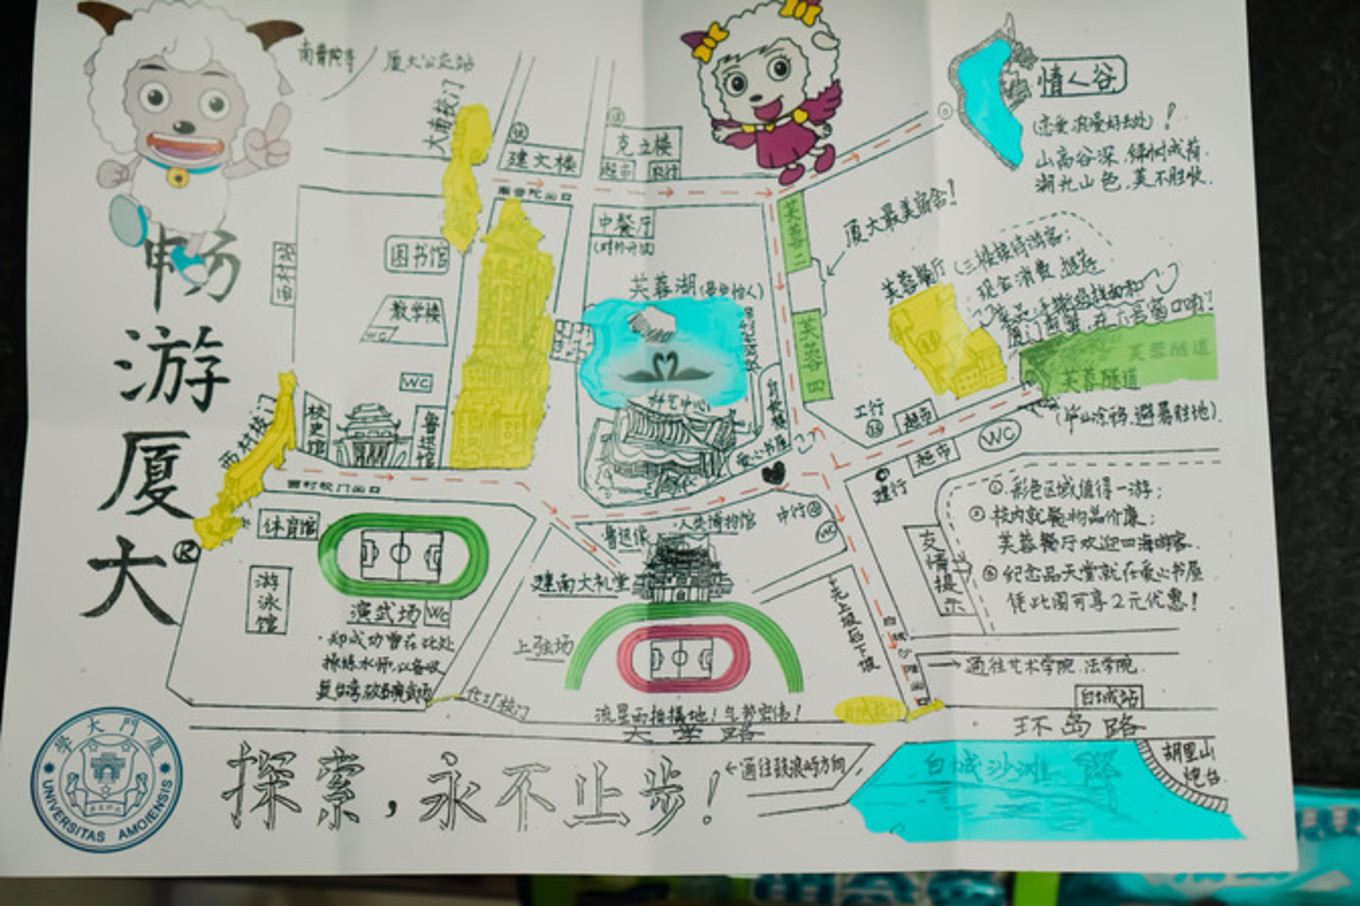 畅游厦大
南普陀寺
厦大公交站
大南校门
建文楼
克立楼
超市
银行
南普陀出口
中餐厅
(对外开放)
图书馆
教学楼
WC
WC
芙蓉湖
芙蓉二
芙蓉四
厦大最美宿舍!
情人谷
(恋爱浪漫好去处)!
山高谷深,绿树成荫.
湖光山色,美不胜收.
芙蓉餐厅
(三楼接待游客;
现金消费
芙蓉隧道
芙蓉隧道
(毕业涂鸦,避暑胜地).
工行
超市
超市
WC
建行
西村校门
校史馆
鲁迅馆
西村校门出口
爱心书屋
体育馆
游泳馆
演武场
WC
·郑成功曾在此处
操练水师,以备收
复台湾,故名演武场
鲁迅像
·人类博物馆
中行
WC
建南大礼堂
上弦场
流星雨拍摄地!气势宏伟!
先上坡后下坡
友情提示
①.彩色区域值得一游;
②校内就餐物品价廉;
芙蓉餐厅欢迎四海游客.
③纪念品天堂就在爱心书屋
凭此图可享2元优惠!
→通往艺术学院.法学院.
白城站
环岛路
大学路
←通往鼓浪屿方向
白城沙滩
胡里山
炮台
探索,永不止步!
學大門廈
UNIVERSITAS AMOIENSIS